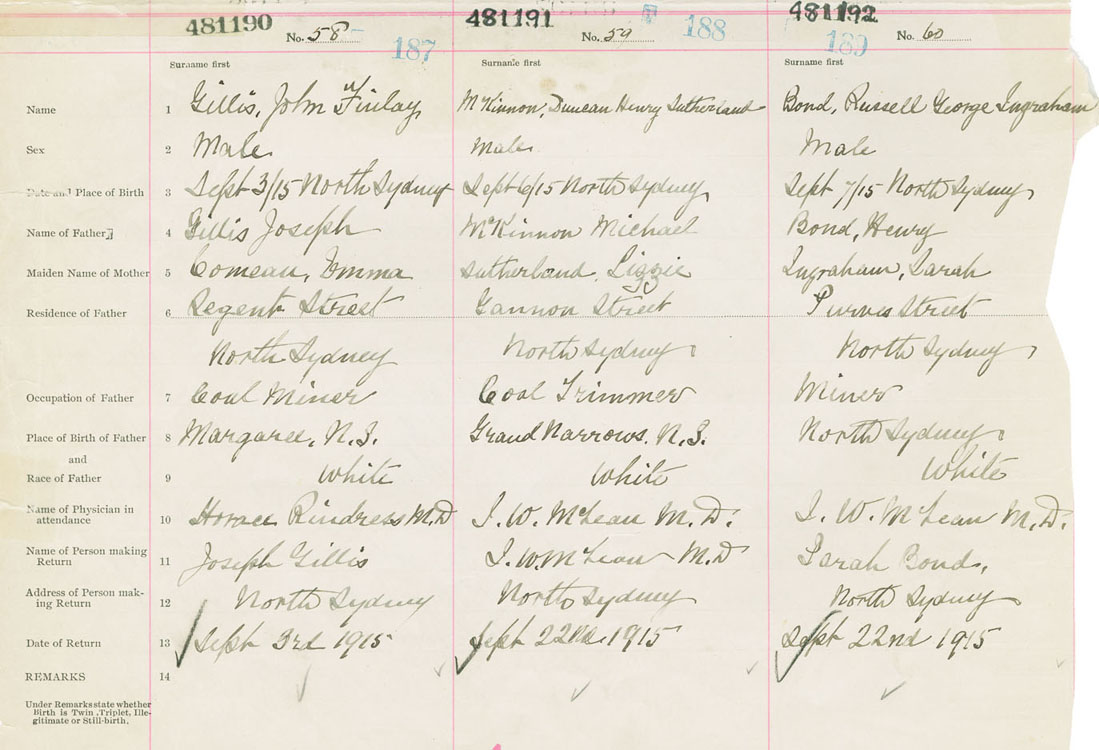 481190 481191 481192
No. 58 187 No. 59 188 189 No. 60
Surname first Surname first Surname first
Name 1 Gillis, John Finlay McKinnon, Duncan Henry Sutherland Bond, Russell George Ingraham
Sex 2 Male Male Male
Date and Place of Birth 3 Sept 3/15 North Sydney Sept 6/15 North Sydney Sept 7/15 North Sydney
Name of Father 4 Gillis Joseph McKinnon Michael Bond, Henry
Maiden Name of Mother 5 Comeau, Emma Sutherland, Lizzie Ingraham, Sarah
Residence of Father 6 Regent Street Gannon Street Purves Street
North Sydney North Sydney North Sydney
Occupation of Father 7 Coal Miner Coal Trimmer Miner
Place of Birth of Father 8 Margaree, N.S. Grand Narrows. N.S. North Sydney
and
Race of Father 9 White White White
Name of Physician in
attendance 10 Horace Rindress M.D I. W. McLean M.D. I. W. McLean M.D.
Name of Person making
Return 11 Joseph Gillis I. W. McLean M.D Sarah Bond,
Address of Person mak-
ing Return 12 North Sydney North Sydney North Sydney
Date of Return 13 Sept 3rd 1915 Sept 22nd 1915 Sept 22nd 1915
REMARKS 14
Under Remarks state whether
Birth is Twin, Triplet, Ille-
gitimate or Still-birth.